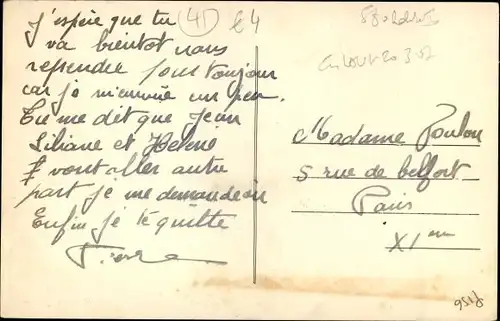 J'espère que tu
va bientôt nous
reprendre pour toujour
car je m'ennuie un peu.
Tu me dit que Jean
Liliane et Helène
vont aller autre
part je me demande où
Enfin je te quitte
Pierre
41
£4
Madame Poulou
5 rue de belfort
Paris
XIème